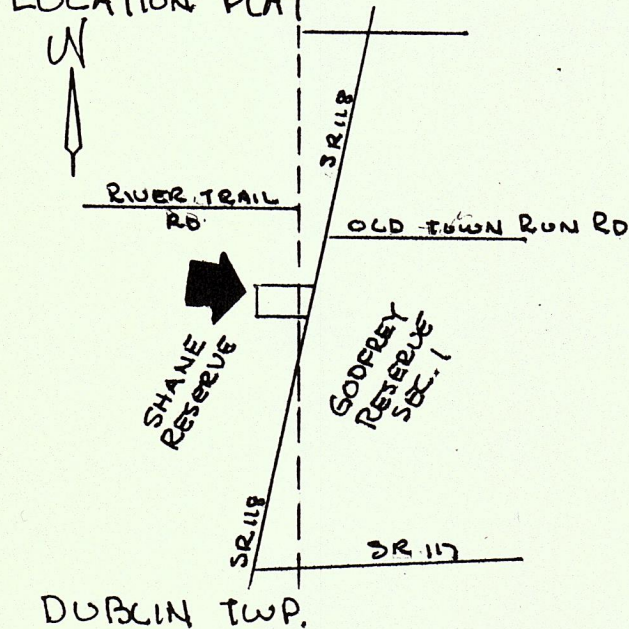 LOCATION PLAT
N
SR 118
RIVER TRAIL
RD.
OLD TOWN RUN RD
SHANE
RESERVE
GODFREY
RESERVE
SEC. 1
SR 118
SR 117
DUBLIN TWP.